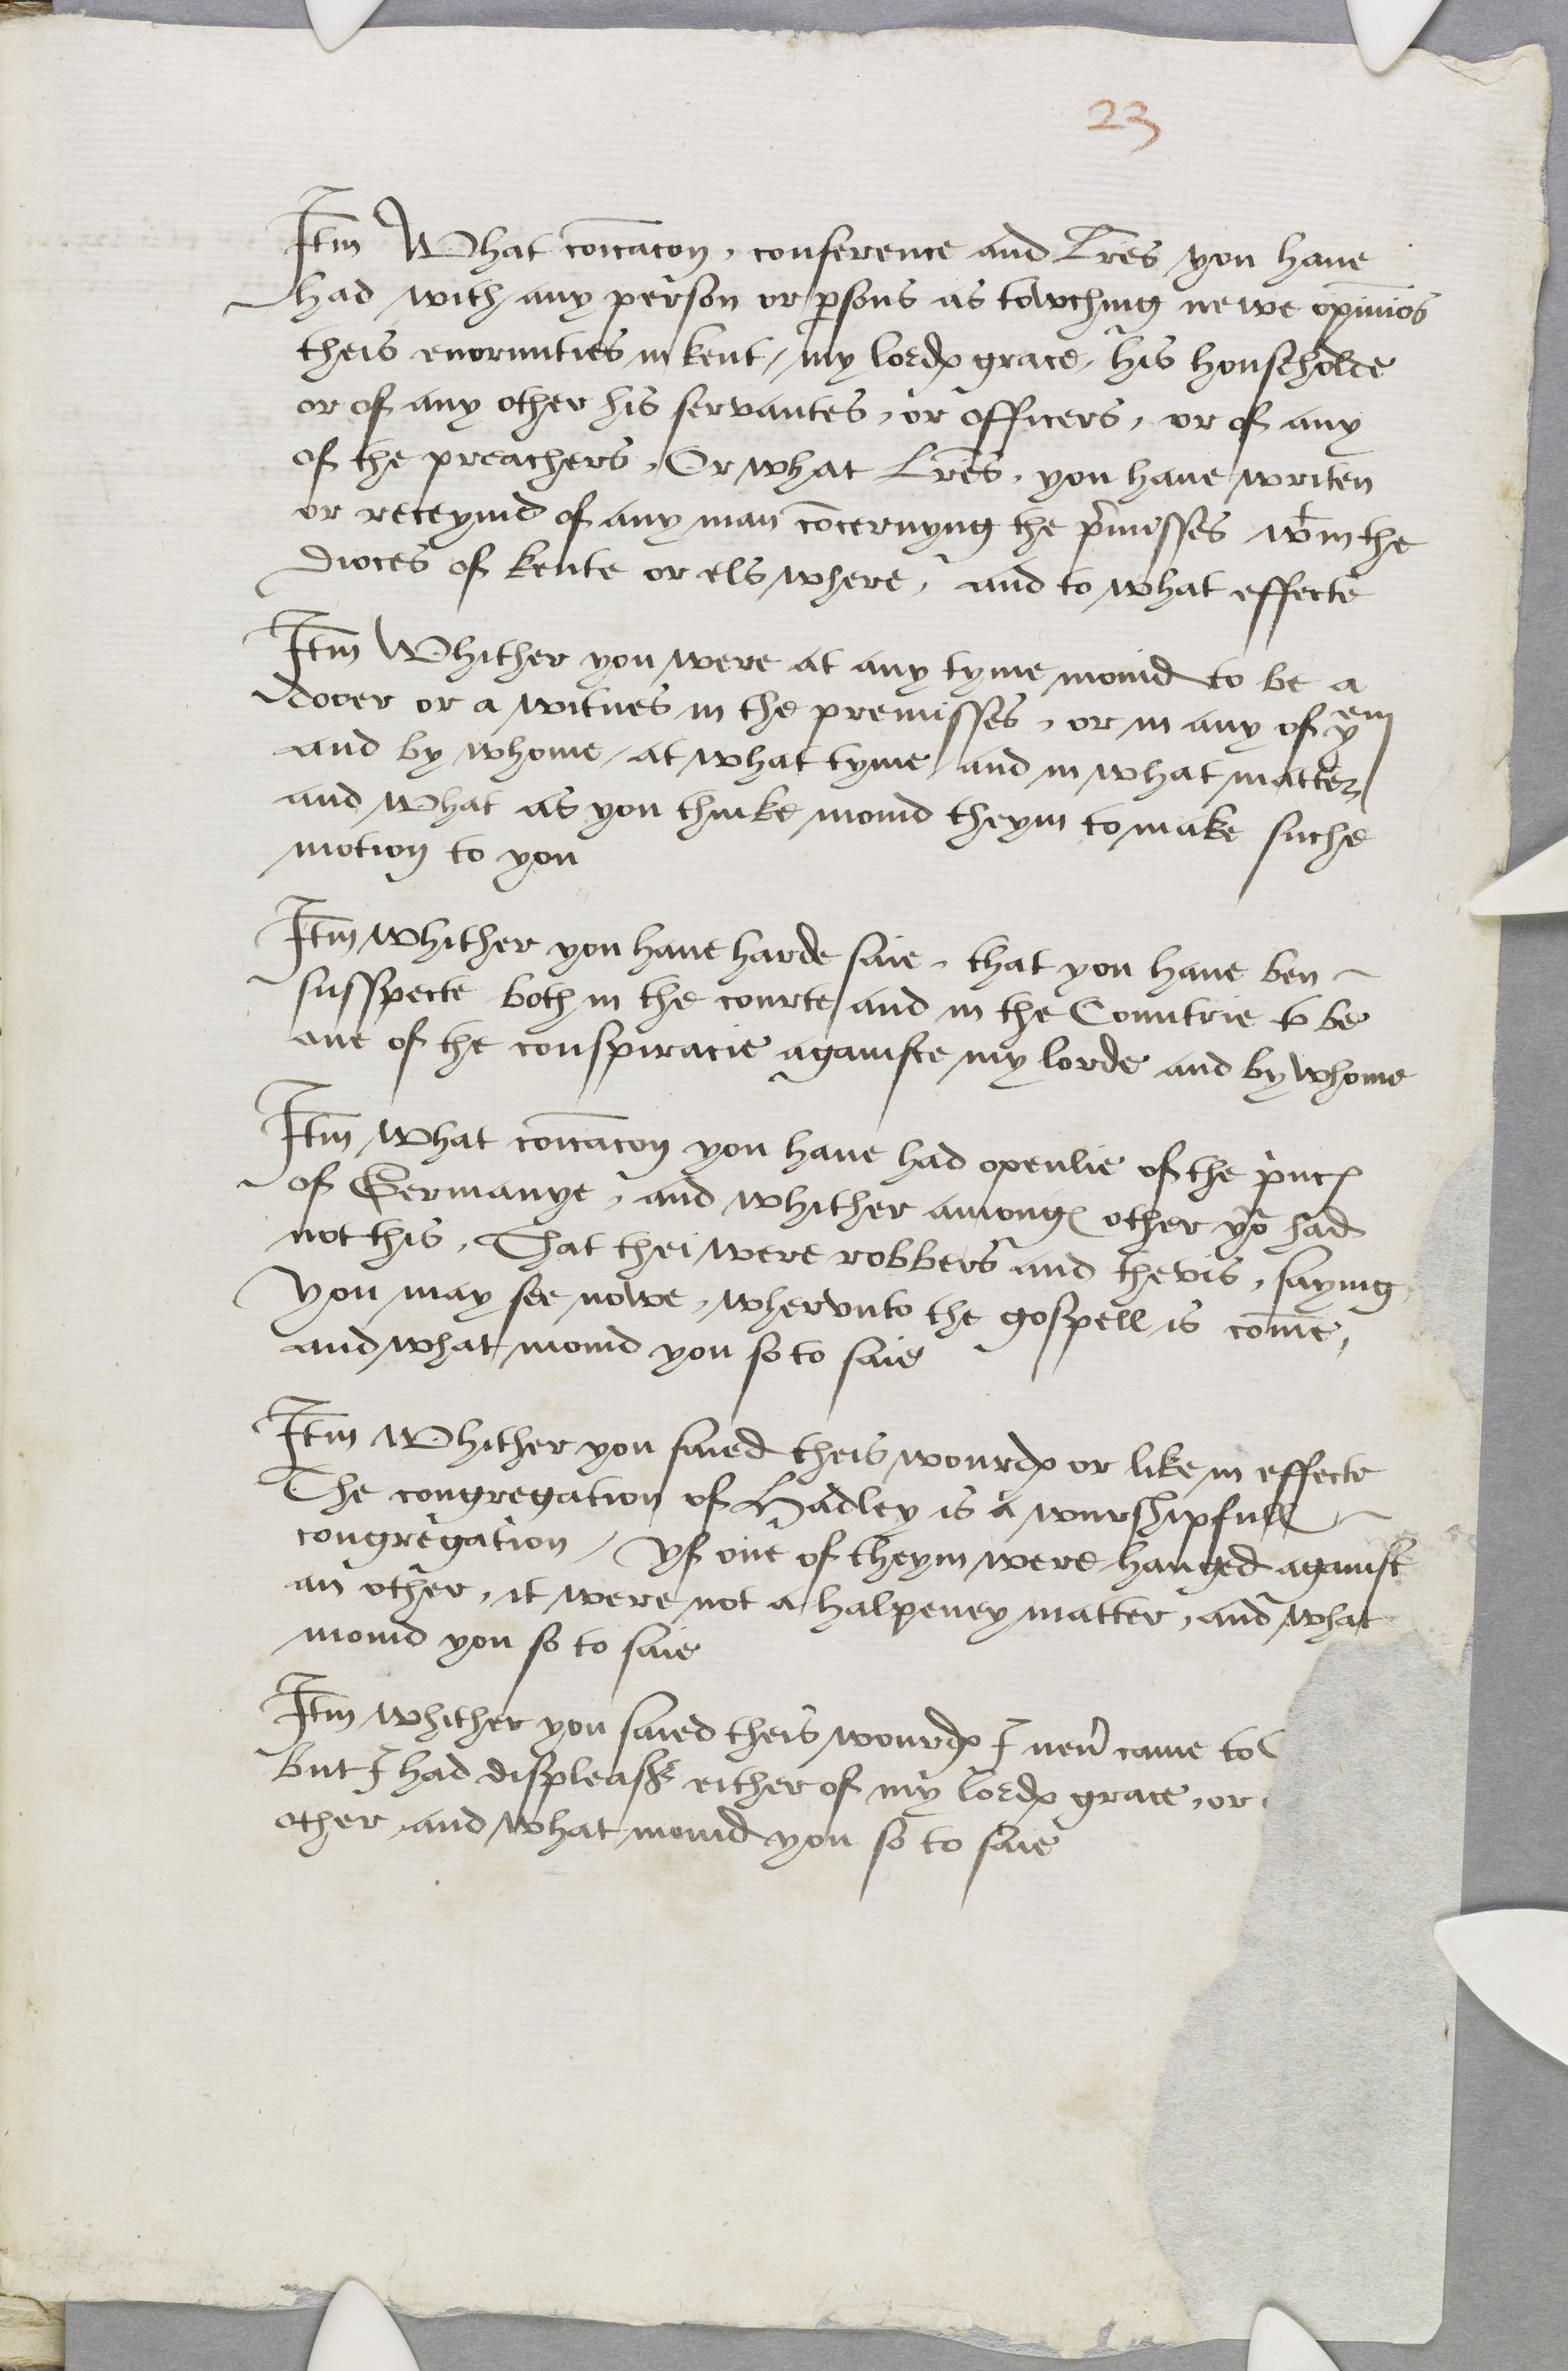 23
Itm What coïcacon, conference and Lrēs you haue
had with any person or p̱sons as towching newe opiniōs
theis enormities in kent, my lordꝭ grace, his householde
or of any other his servantes, or officers, or of any
of the preachers, Or what Lrēs, you haue writen
or receyuid of any man cōcernyng the p̄misses wᵗin the
Dioces of kente or els where, and to what effecte
Itm Whither you were at any tyme mouid to be a
dooer or a witnes in the premisses, or in any of yᵉᵐ
and by whome, at what tyme, and in what matter,
and what as you thinke mouid theym to make suche
motion to you
Itm whither you haue harde saie, that you haue ben
susspecte both in the courte and in the Countrie to be
one of the conspiracie againste my lorde and by whome
Itm what coïcacon you haue had openlie of the p̄ncꝭ
of Germanye, and whither amongꝭ other yoᵘ had
not this, That thei were robbers and thevis, saying
you may see nowe, whervnto the gospell is cōme,
and what mouid you so to saie
Itm Whither you saied theis wourdꝭ or like in effecte
The congregation of Hadley is a wurshipfull
congregation, yf one of theym were hanged against
an other, it were not a halpeney matter, and what
mouid you so to saie
Itm whither you saied theis wourdꝭ I neuʾ came to
but I had displeasʳᵉ either of my lordꝭ grace, or
other, and what mouid you so to saie